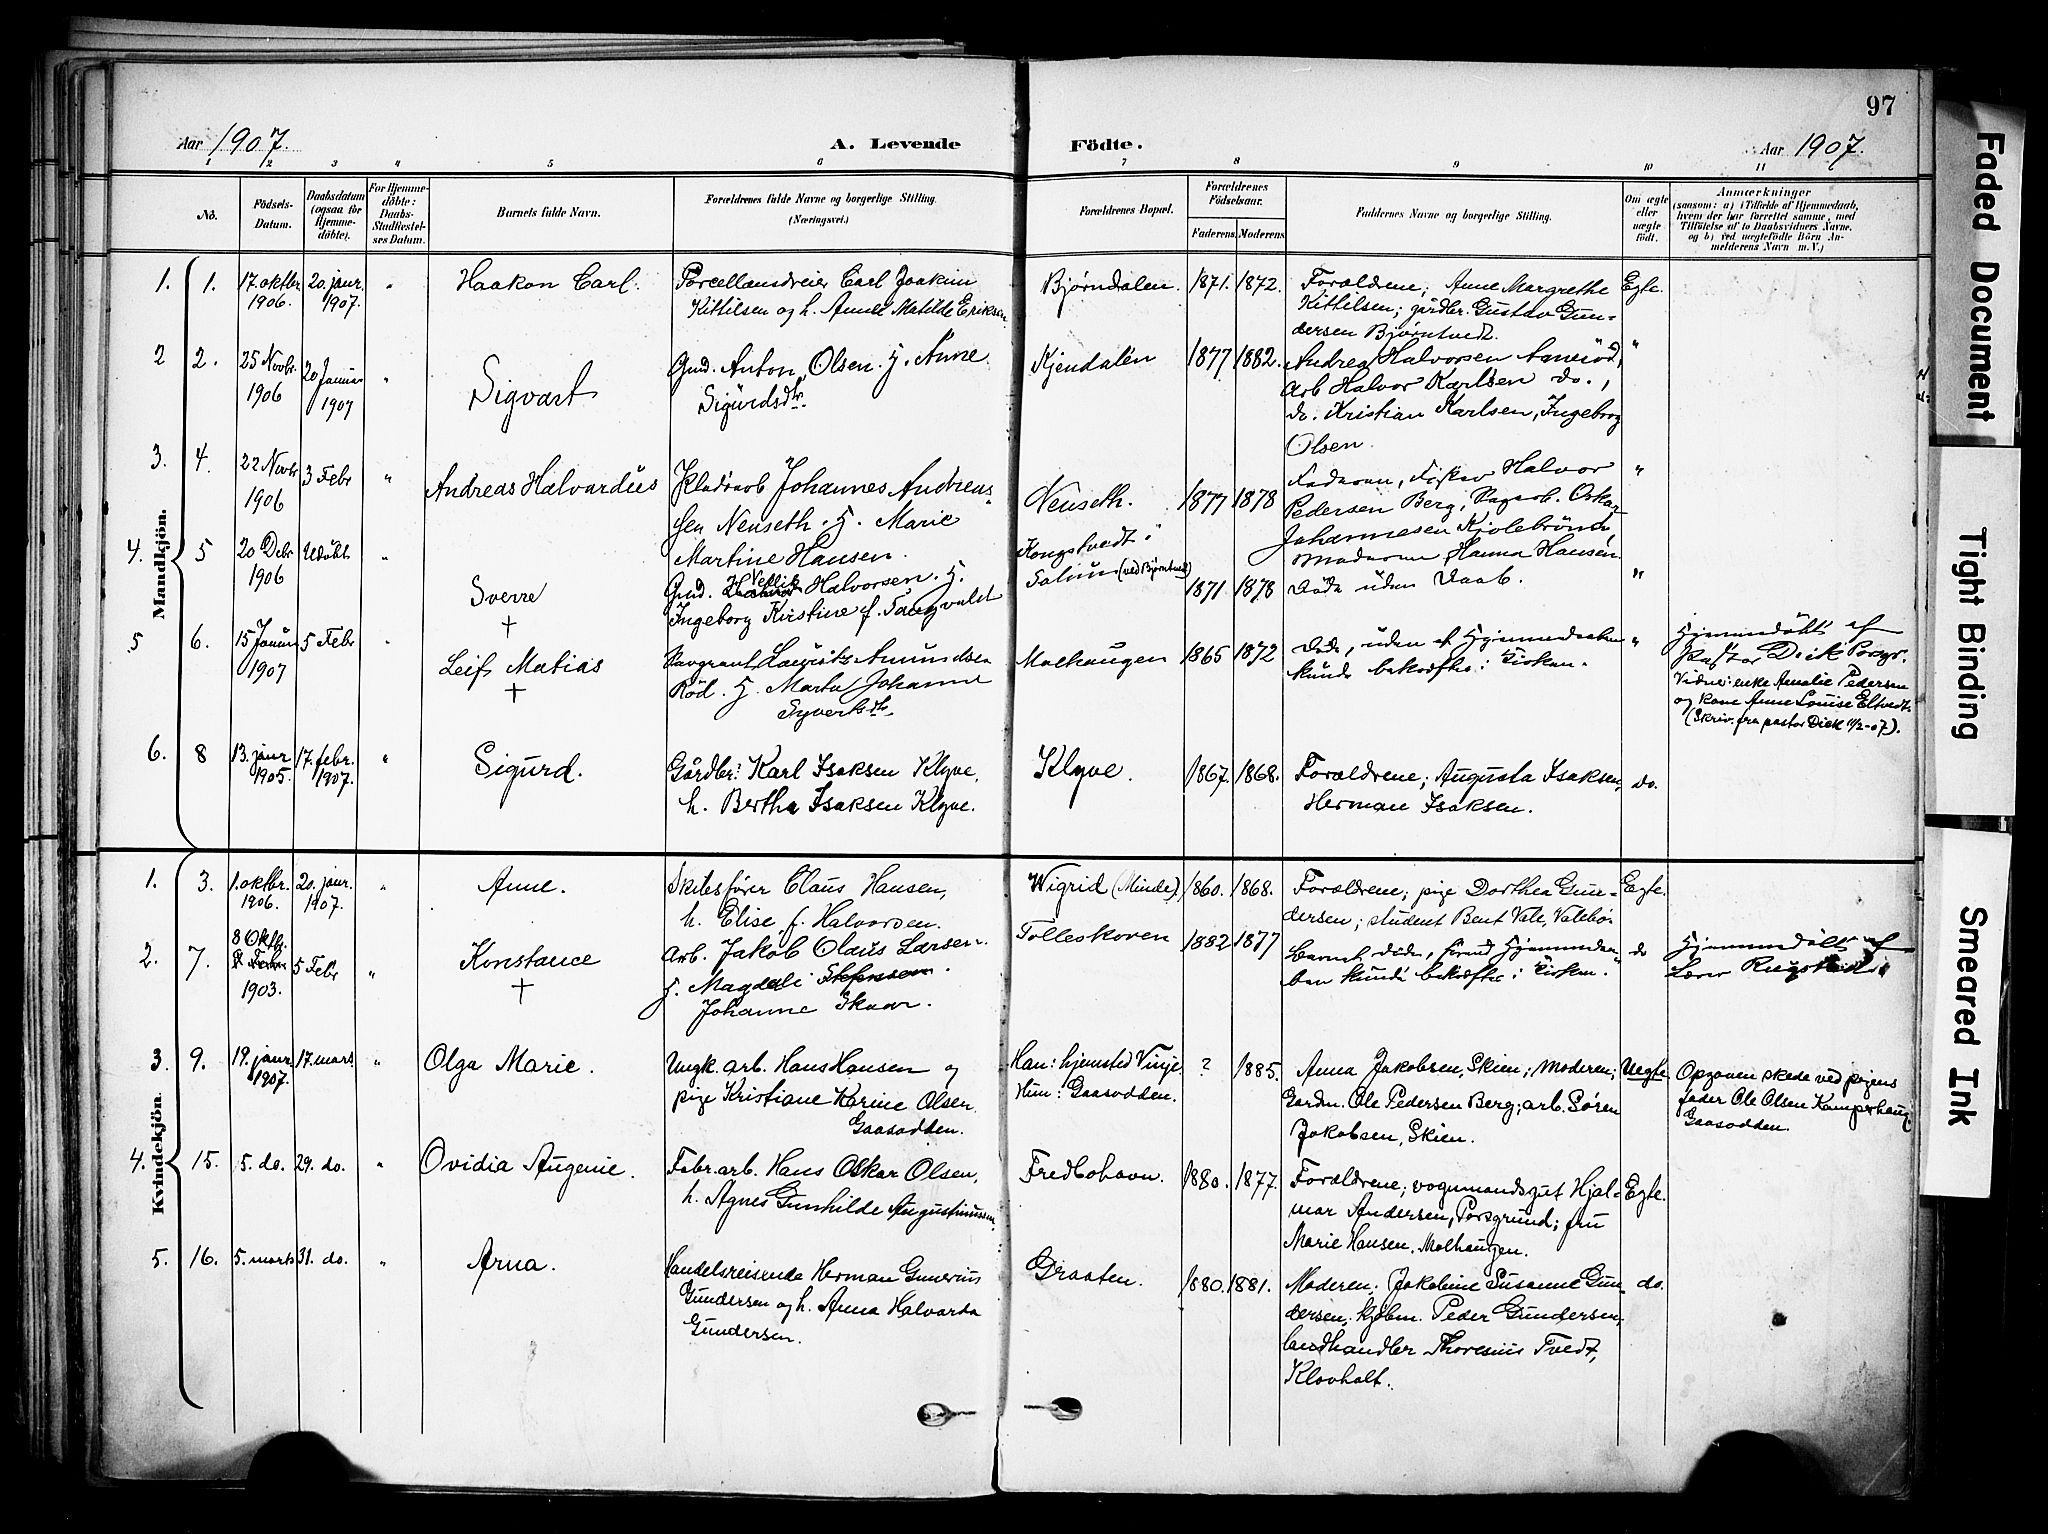 97
Aar 1907.
A. Levende
Fødte.
Aar 1907.
1 2 3 4 5 6 7 8 9 10 11
No.
Fødsels-
Datum.
Daabsdatum
(ogsaa for
Hjemme-
døbte).
For Hjemme-
døbte:
Daabs-
Stadfæstel-
ses Datum.
Barnets fulde Navn.
Forældrenes fulde Navne og borgerlige Stilling
(Næringsvei.)
Forældrenes Bopæl.
Forældrenes
Fødselsaar.
Faderens
Moderens
Faddernes Navne og borgerlige Stilling.
Om ægte
eller
uægte
født.
Anmærkninger
(saasom: a) i Tilfælde af Hjemmedaab,
hvem der har forrettet samme, med
Tilføielse af to Daabsvidners Navne,
og b) ved uægtefødte Børn An-
melderens Navn m. V.)
Mandkjön.
1. 1. 17. oktbr. 1906. 20. janr. 1907. " Haakon Carl.
Porcellænsdreier Carl Joakim
Kittilsen og h. Anne Matilde Eriksen
Bjørndalen. 1871. 1872.
Forældrene; Anne Margrethe
Kittilsen; gårdbr. Gustav Gun-
dersen Bjørntvedt.
Egte.
2 2. 25 Novbr. 1906 20 Januar 1907 " Sigvart
Gmd. Anton Olsen. H. Anne
Sigurdsdtr.
Kjendalen 1877 1882.
Andrea Halvorsen
Arb Halvor Karlsen do.,
do. Kristian Karlsen, Ingeborg
Olsen.
"
3. 4. 22 Novbr 1906 3 Febr " Andreas Halvardus
Johannes Andreas-
sen Nenseth. H. Marie
Martine Hansen.
Nenseth. 1877 1878
Faderen, Fisker Halvor
Pedersen Berg, Oskar
Johannesen
Moderen Hanna Hansen
"
4. 5 20 Debr 1906 Udöbt " Sverre
†
Gmd. Halvorsen. H.
Ingeborg Kirstine f. Tangvald
Kongstvedt i
(ved Björntvedt)
1871 1878 Döde uden Daab. "
5 6. 15 Januar 1907 5 Febr " Leif Matias
†
Lauritz Amundsen
Röd. H. Marta Johanne
Syvertsdtr.
Molhaugen 1865 1872
Döde, uden at Hjemmedaaben
kunde bekræftes i Kirken.
"
Hjemmedöbt af
Pastor Dick Porsgr.
Vidne: enke Amalie Pedersen
og kone Anne Louise Eltvedt.
(Skriv. fra pastor Dick 11/2-07).
6. 8 13. janr 1905. 17. febr. 1907. " Sigurd.
Gårdbr. Karl Isaksen Klyve,
h. Bertha Isaksen Klyve.
Klyve. 1867. 1868.
Forældrene; Augusta Isaksen,
Herman Isaksen.
do.
Kvindekjön.
1. 3. 1. oktbr. 1906. 20. janr. 1907. " Anne.
Skibsfører Claus Hansen,
h. Elise, f. Halvorsen.
Wigrid (Minde) 1860. 1868.
Forældrene; pige Dorthea Gun-
dersen; student Bent Vale,
Egte.
2. 7. 8 Oktb. 1903. 5 Febr " Konstance
†
Arb. Jakob Olaus Larsen.
H. Magdeli Stefensen
Johanne Skaar.
Tolleskoven 1882 1877
Barnet döde, förend Hjemmedaa-
ben kunde bekræftes i Kirken.
do
Hjemmedöbt af
Lærer
3. 9. 19. janr 1907. 17. mars " Olga Marie.
Ungk. arb. Hans Hansen og
pige Kristiane Karine Olsen
Gaasodden.
Han: hjemsted Vinje.
Hun: Gaasodden.
? 1885.
Anna Jakobsen, Skien; Moderen;
Gardm. Ole Pedersen Berg; arb. Søren
Jakobsen, Skien.
Uegte
Opgaven skede ved pigens
fader Ole Olsen Kamperhaug
Gaasodden.
4. 15. 5. do. 29. do. " Ovidia Augenie.
Fabr. arb. Hans Oskar Olsen,
h. Agnes Gunhilde Augustinussen
Fredbohavn. 1880. 1877.
Forældrene; vognmandsgut Hjal-
mar Andersen, Porsgrund; fru
Marie Hansen, Molhaugen.
Egte.
5. 16. 5. marts 31. do. " Arna.
Handelsreisende Herman Gunerius
Gundersen og h. Anna Halvarda
Gundersen.
Graaten. 1880. 1881.
Moderen; Jakobine Susanne Gun-
dersen; kjøbm. Peder Gundersen,
landhandler Thoresius Tvedt,
Klovholt.
do.
Faded Document
Tight Binding
Smeared Ink